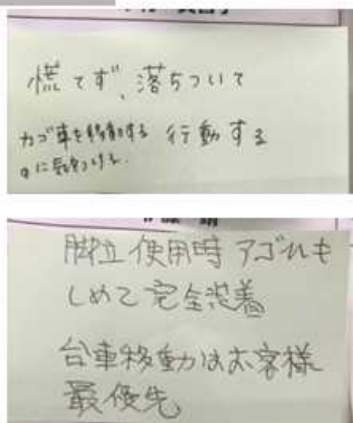 慌てず、落ちついて
カゴ車を移動する 行動する
のに気をつける。
脚立使用時アゴヒモ
しめて完全装着
台車移動はお客様
最優先